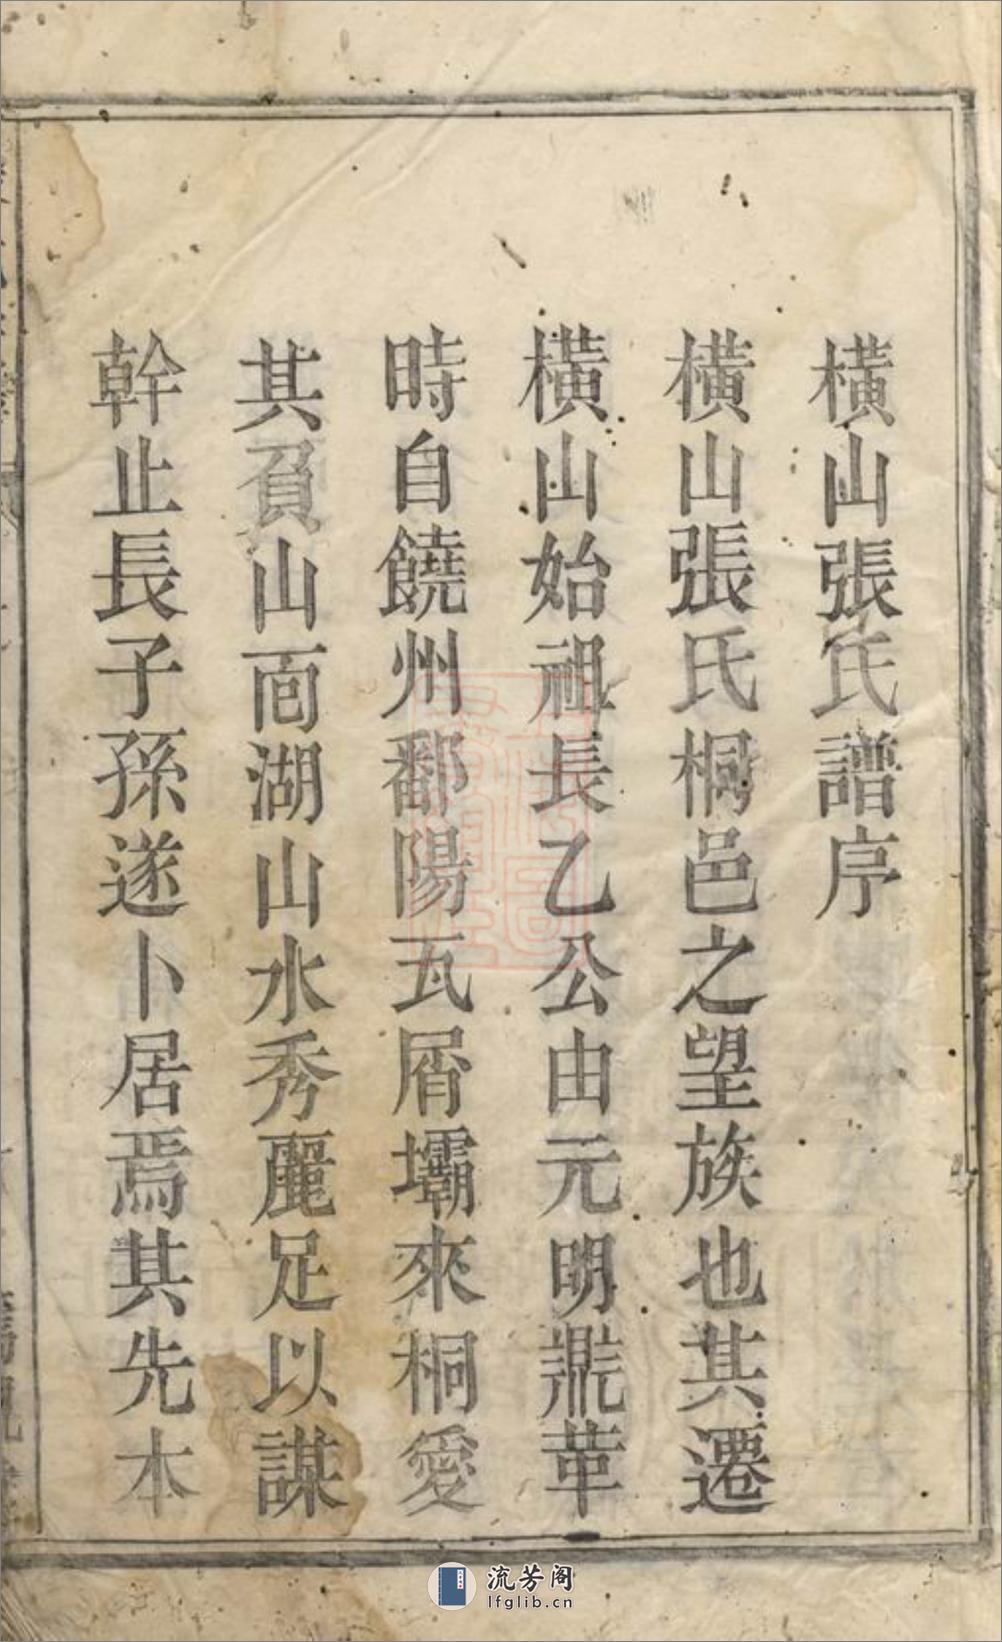 橫山張氏譜序
橫山張氏桐邑之望族也其遷
橫山始祖長乙公由元明鼎革
時自饒州鄱陽瓦屑壩來桐愛
其負山面湖山水秀麗足以謀
幹止長子孫遂卜居焉其先本
流芳阁
lfglib.cn